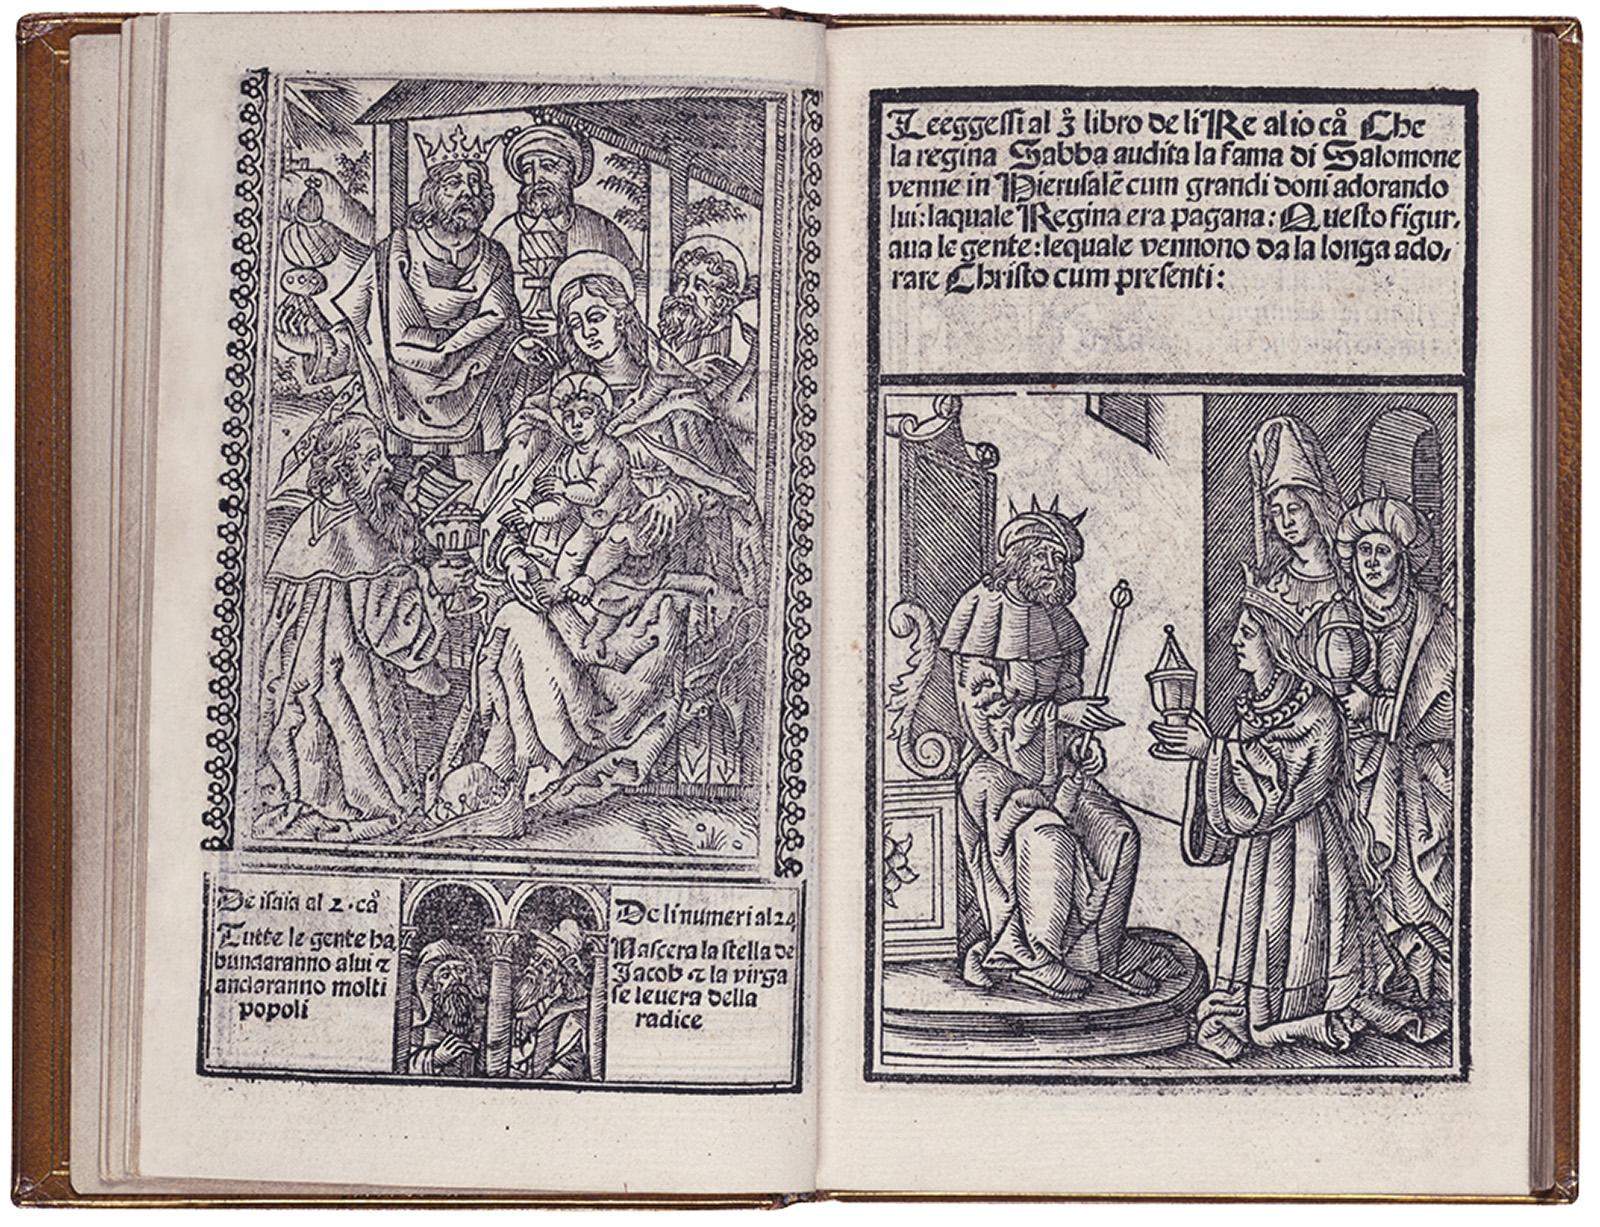 De isaia al 2. cå
Tutte le gente ha
bundaranno a lui ⁊
andaranno molti
popoli
De li numeri al 24
Nascera la stella de
Jacob ⁊ la virga
se leuera della
radice
Leeggessi al 3̊ libro de li Re al io cå Che
la regina Sabba audita la fama di Salomone
venne in Hierusalē cum grandi doni adorando
lui: laquale Regina era pagana: Questo figur,
aua le gente: lequale vennono da la longa ado,
rare Christo cum presenti: